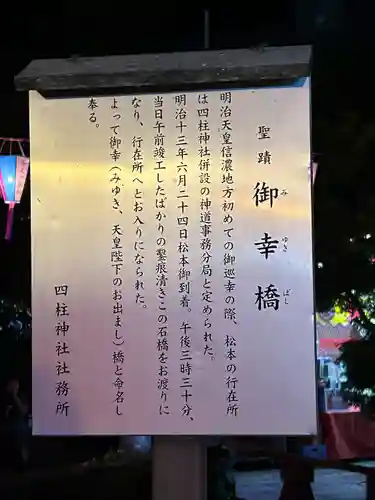 聖蹟 御幸橋
み ゆき ばし
明治天皇信濃地方初めての御巡幸の際、松本の行在所
は四柱神社併設の神道事務分局と定められた。
明治十三年六月二十四日松本御到着。午後三時三十分、
当日午前竣工したばかりの鏨痕清きこの石橋をお渡りに
なり、行在所へとお入りになられた。
よって御幸(みゆき、天皇陛下のお出まし)橋と命名し
奉る。
四柱神社社務所